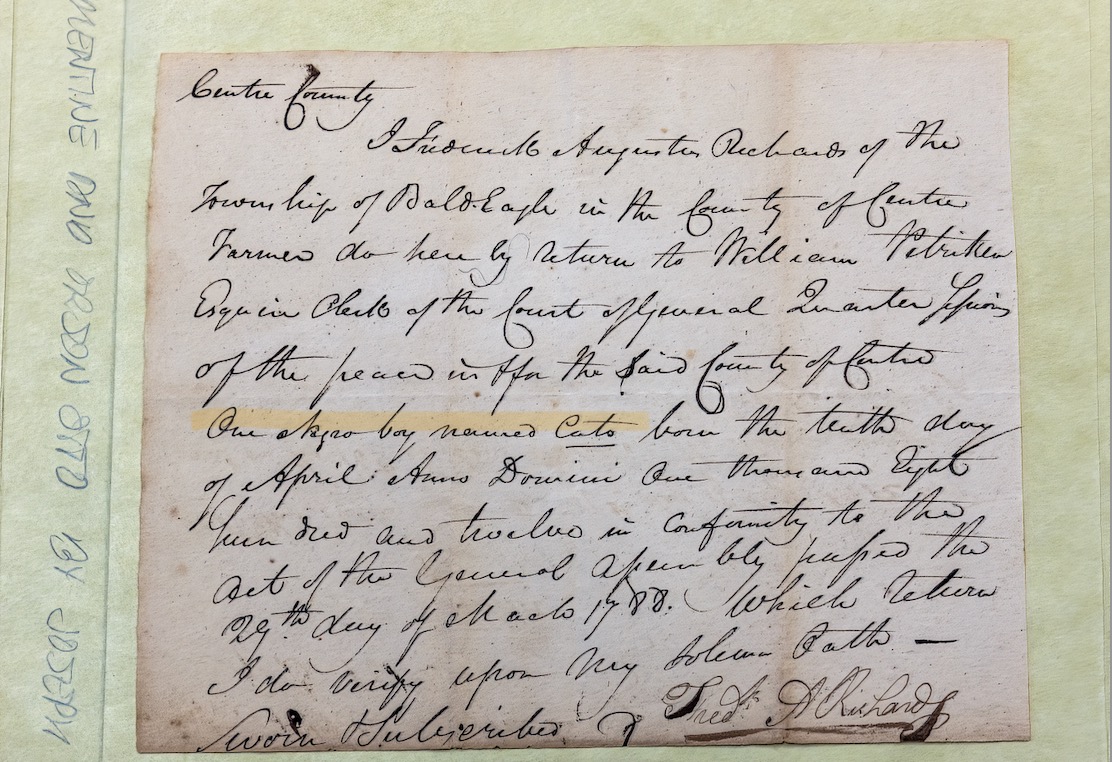 Centre County
I Frederick Augustus Richards of the
Township of Bald Eagle in the County of Centre
Farmer do here by return to William Petriken
Esquire Clerk of the Court of General Quarter Sessions
of the peace in & for the Said County of Centre
One Negro boy named Cato born the tenth day
of April Anno Domini One thousand Eight
hundred and twelve in conformity to the
act of the General assembly passed the
29th day of March 1788. Which return
I do verify upon my solemn Oath —
Fredk A Richards
Sworn & Subscribed